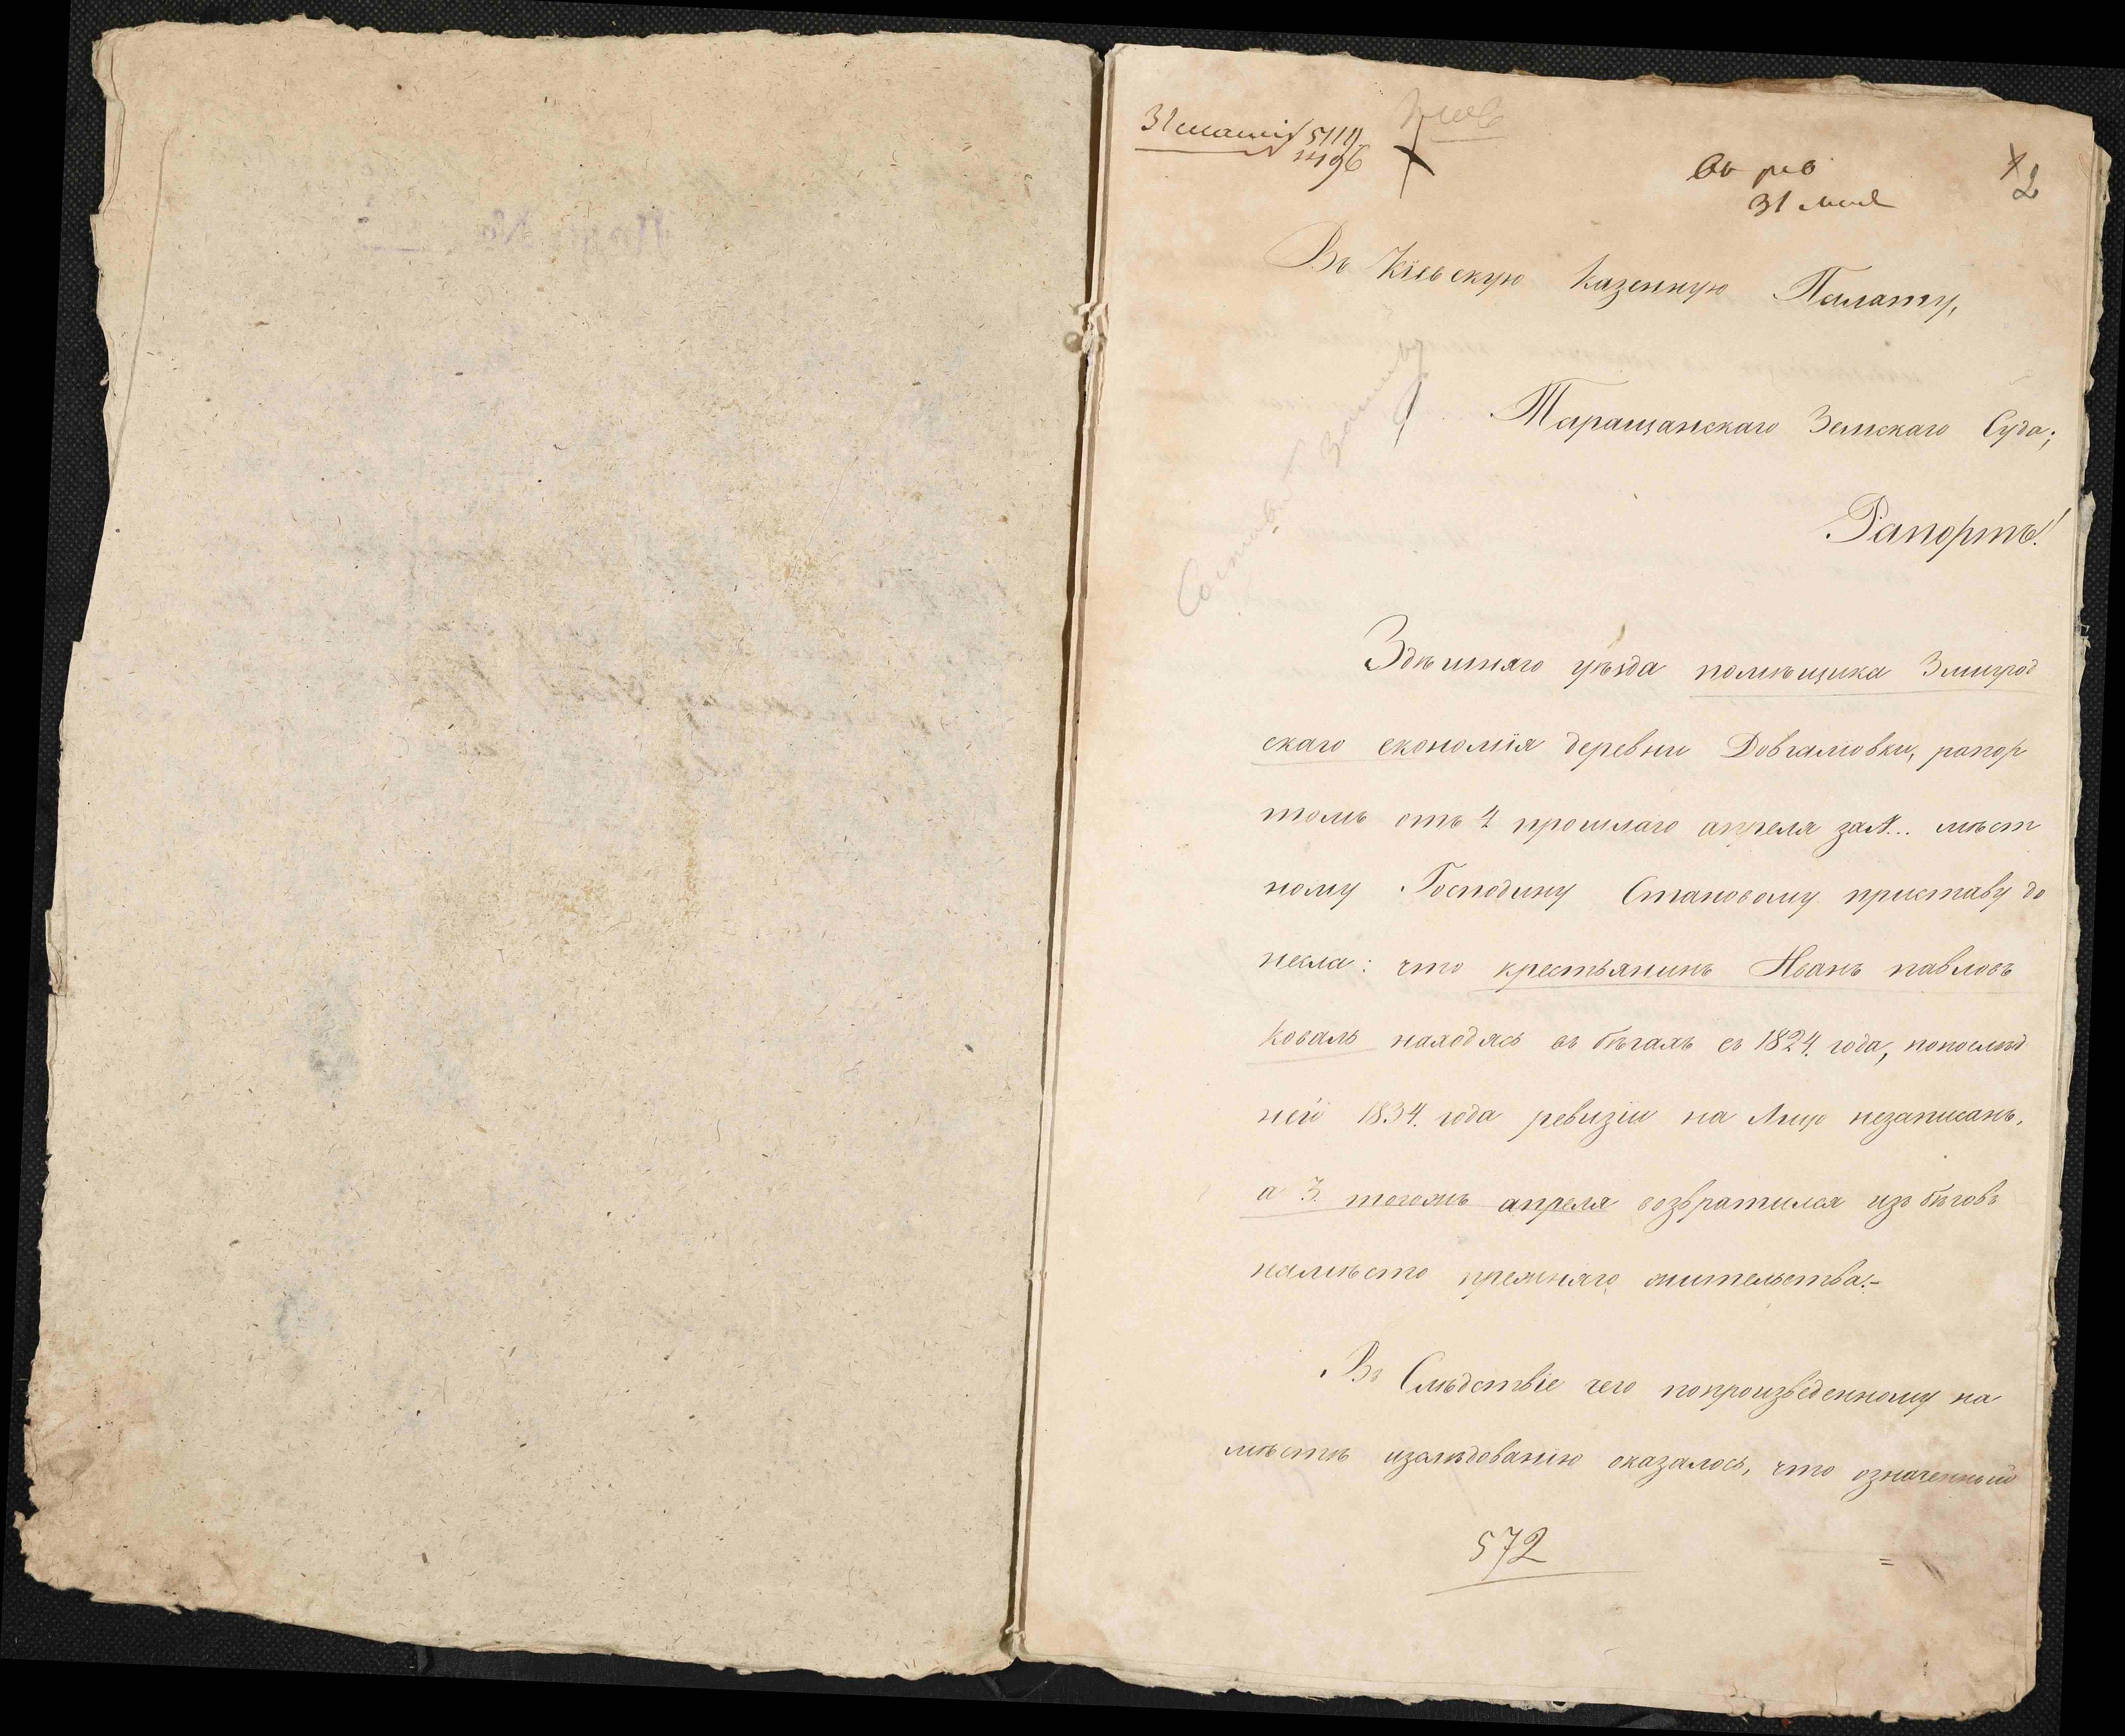 31 маія 5119
1496
Въ рев
31 мая
2
Въ Кіевскую Казенную Палату,
Таращанскаго Земскаго Суда;
Рапортъ!
Здѣшняго уѣзда помѣщика Змигрод
скаго економія деревни Довгалювки, рапор
томъ отъ 4 прошлаго апреля за №... мѣст
ному Господину Становому приставу до
несла: что крестьянинъ Иванъ павловъ
Коваль находясь въ бѣгахъ съ 1824. года, попослѣд
ней 1834. года ревизіи на Лицо незаписанъ,
а 3. тогожъ апреля возвратился изъ бѣговъ
намѣсто прежняго жительства.-
Въ Слѣдствіе чего попроизведенному на
мѣстѣ изслѣдованію оказалось, что означенный
572